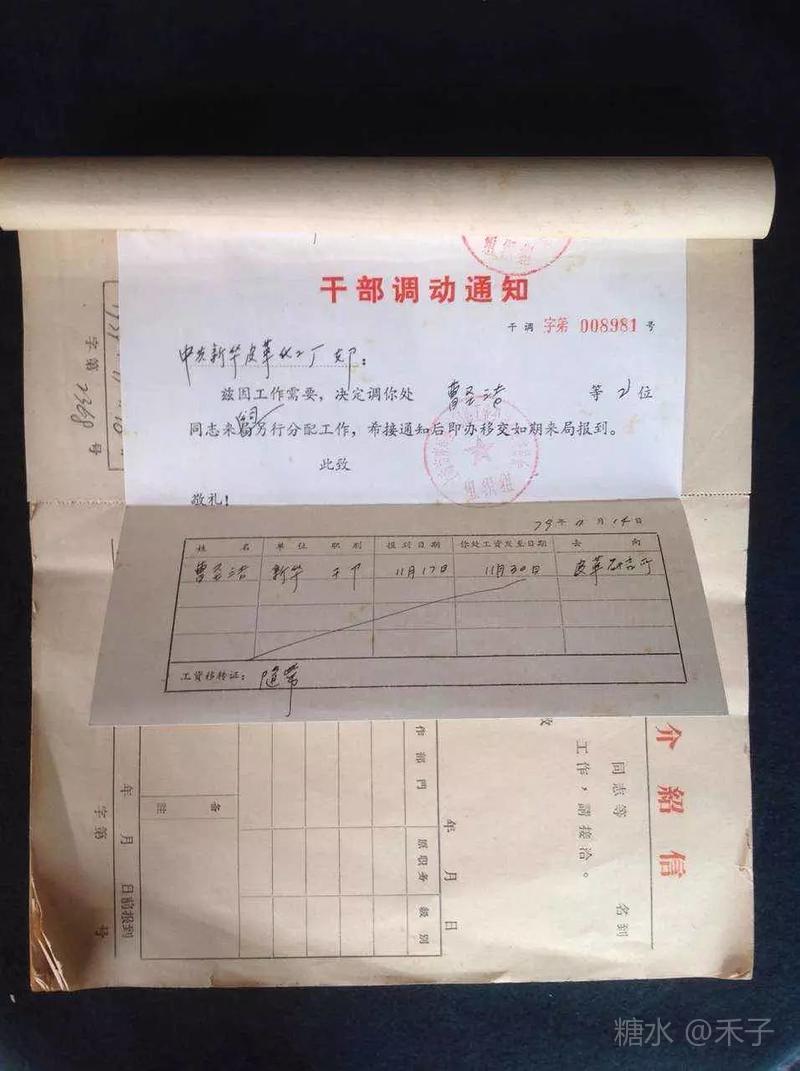 干部调动通知
干调 字第 008981 号
中共新华皮革化工厂支部：
兹因工作需要，决定调你处 等 位
同志来局另行分配工作，希接通知后即办移交如期来局报到。
此致
敬礼！
79年11月14日
姓名 单位 职别 报到日期 你处工资发至日期 去向
新华 干部 11月17日 11月30日 皮革研究所
工资移转证： 随带
组织组
字第2368号
介紹信
同志等 名到
工作，請接洽。
年 月 日
作部門
原职务
级别
备註
年 月 日前报到
字第 号
糖水 @禾子